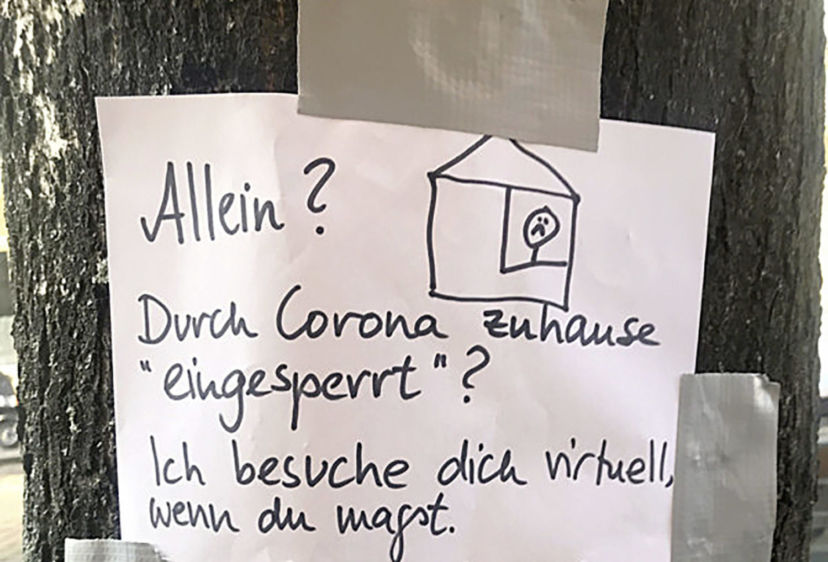 Allein?
Durch Corona zuhause
"eingesperrt"?
Ich besuche dich virtuell,
wenn du magst.